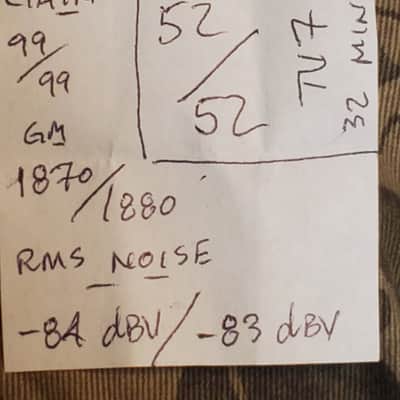 99
/99
GM
1870/1880
RMS NOISE
-84 dBV/-83 dBV
52
/
52
TV7
32 MIN